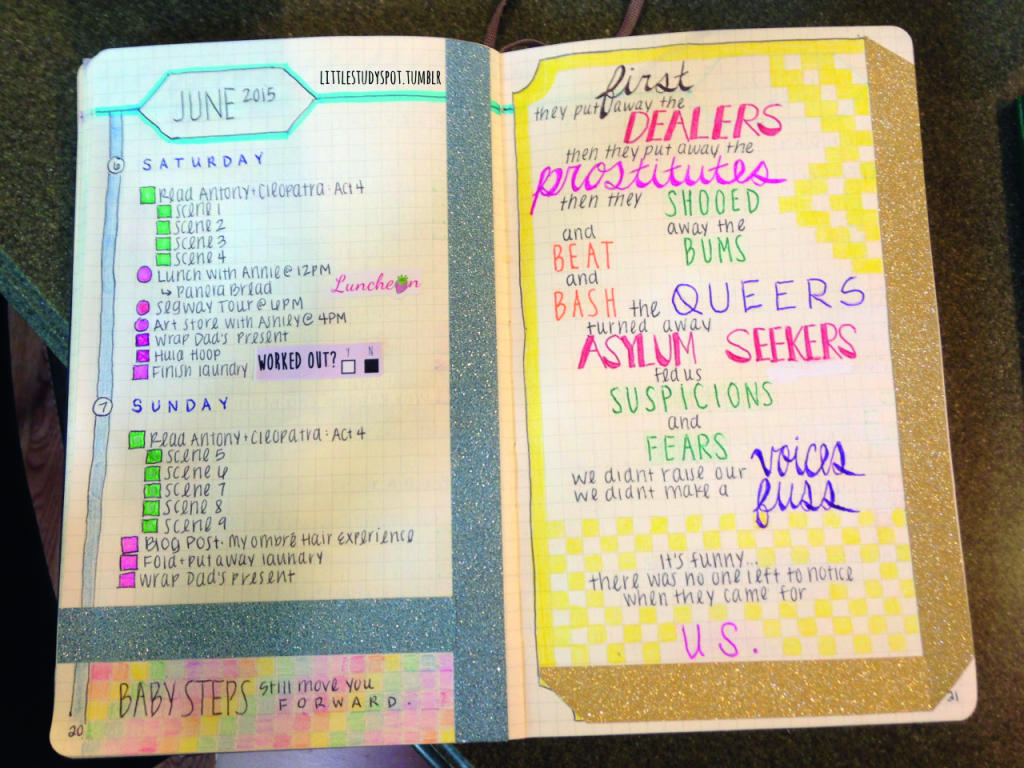 LITTLESTUDYSPOT.TUMBLR
JUNE 2015
6 SATURDAY
Read Antony + Cleopatra: Act 4
Scene 1
Scene 2
Scene 3
Scene 4
Lunch with Annie @ 12PM
↳ Panera Bread
Luncheon
Segway Tour @ 6PM
Art Store with Ashley @ 4PM
Wrap Dad's Present
Hula Hoop
Finish laundry
WORKED OUT? Y N
7 SUNDAY
Read Antony + Cleopatra: Act 4
Scene 5
Scene 6
Scene 7
Scene 8
Scene 9
Blog Post: My ombré Hair Experience
Fold + put away laundry
Wrap Dad's Present
BABY STEPS still move you
FORWARD.
20
first
they put away the
DEALERS
then they put away the
prostitutes
then they SHOOED
and away the
BEAT BUMS
and
BASH the QUEERS
turned away
ASYLUM SEEKERS
fed us
SUSPICIONS
and
FEARS
we didnt raise our voices
we didnt make a fuss
It's funny...
there was no one left to notice
when they came for
US.
21